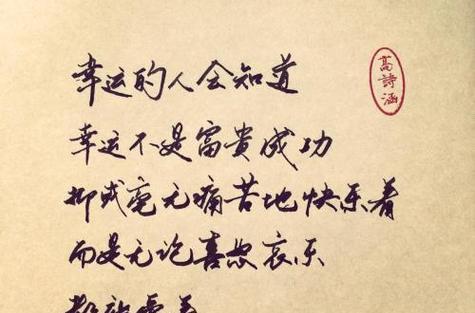 幸运的人会知道
幸运不是富貴成功
抑或毫无痛苦地快乐着
而是无论喜怒哀乐
高詩涵